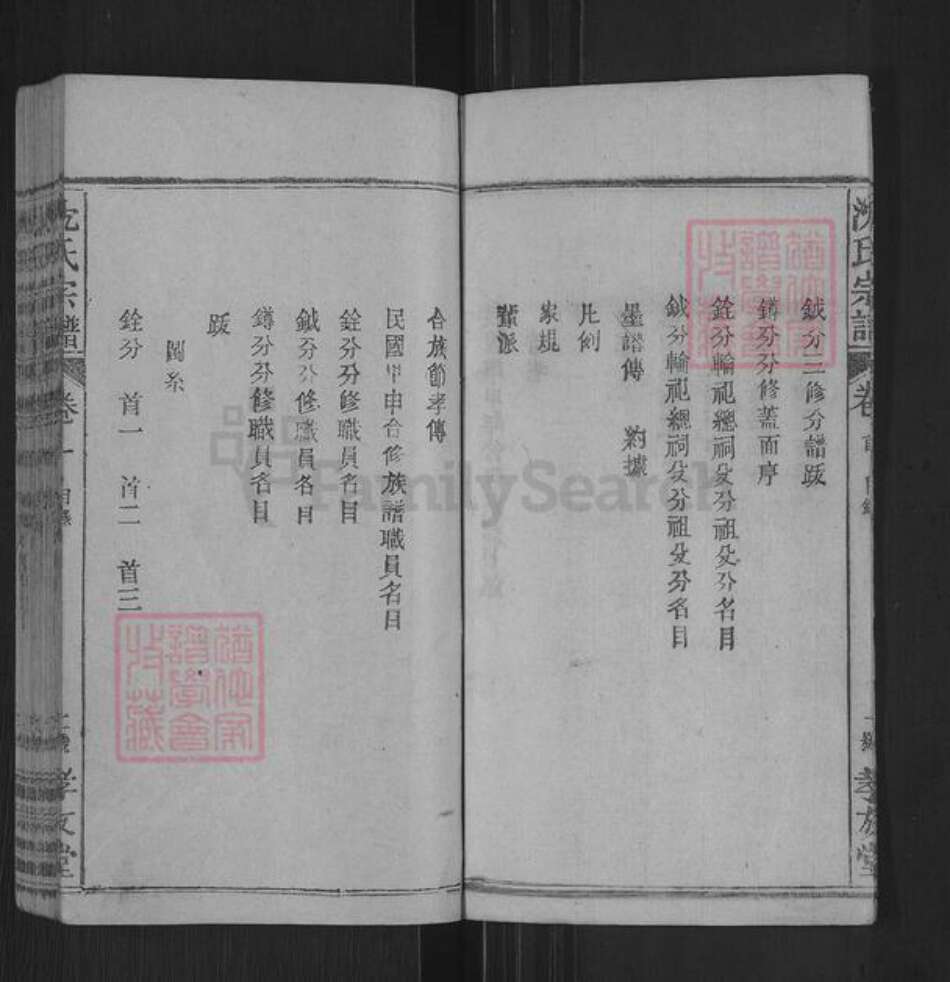 沈氏宗譜
卷
目錄
孝友堂
鉞分三修分譜跋
鐏分分修蓋面序
銓分輪祀總祠及分祖及分名目
鉞分輪祀總祠及分祖及分名目
墨譜傳 約據
凡例
家規
派
合族節孝傳
民國甲申合修族譜職員名目
銓分分修職員名目
鉞分分修職員名目
鐏分分修職員名目
跋
圖系
銓分 首一 首二 首三
沈氏宗譜
卷
目錄
孝友堂
FamilySearch